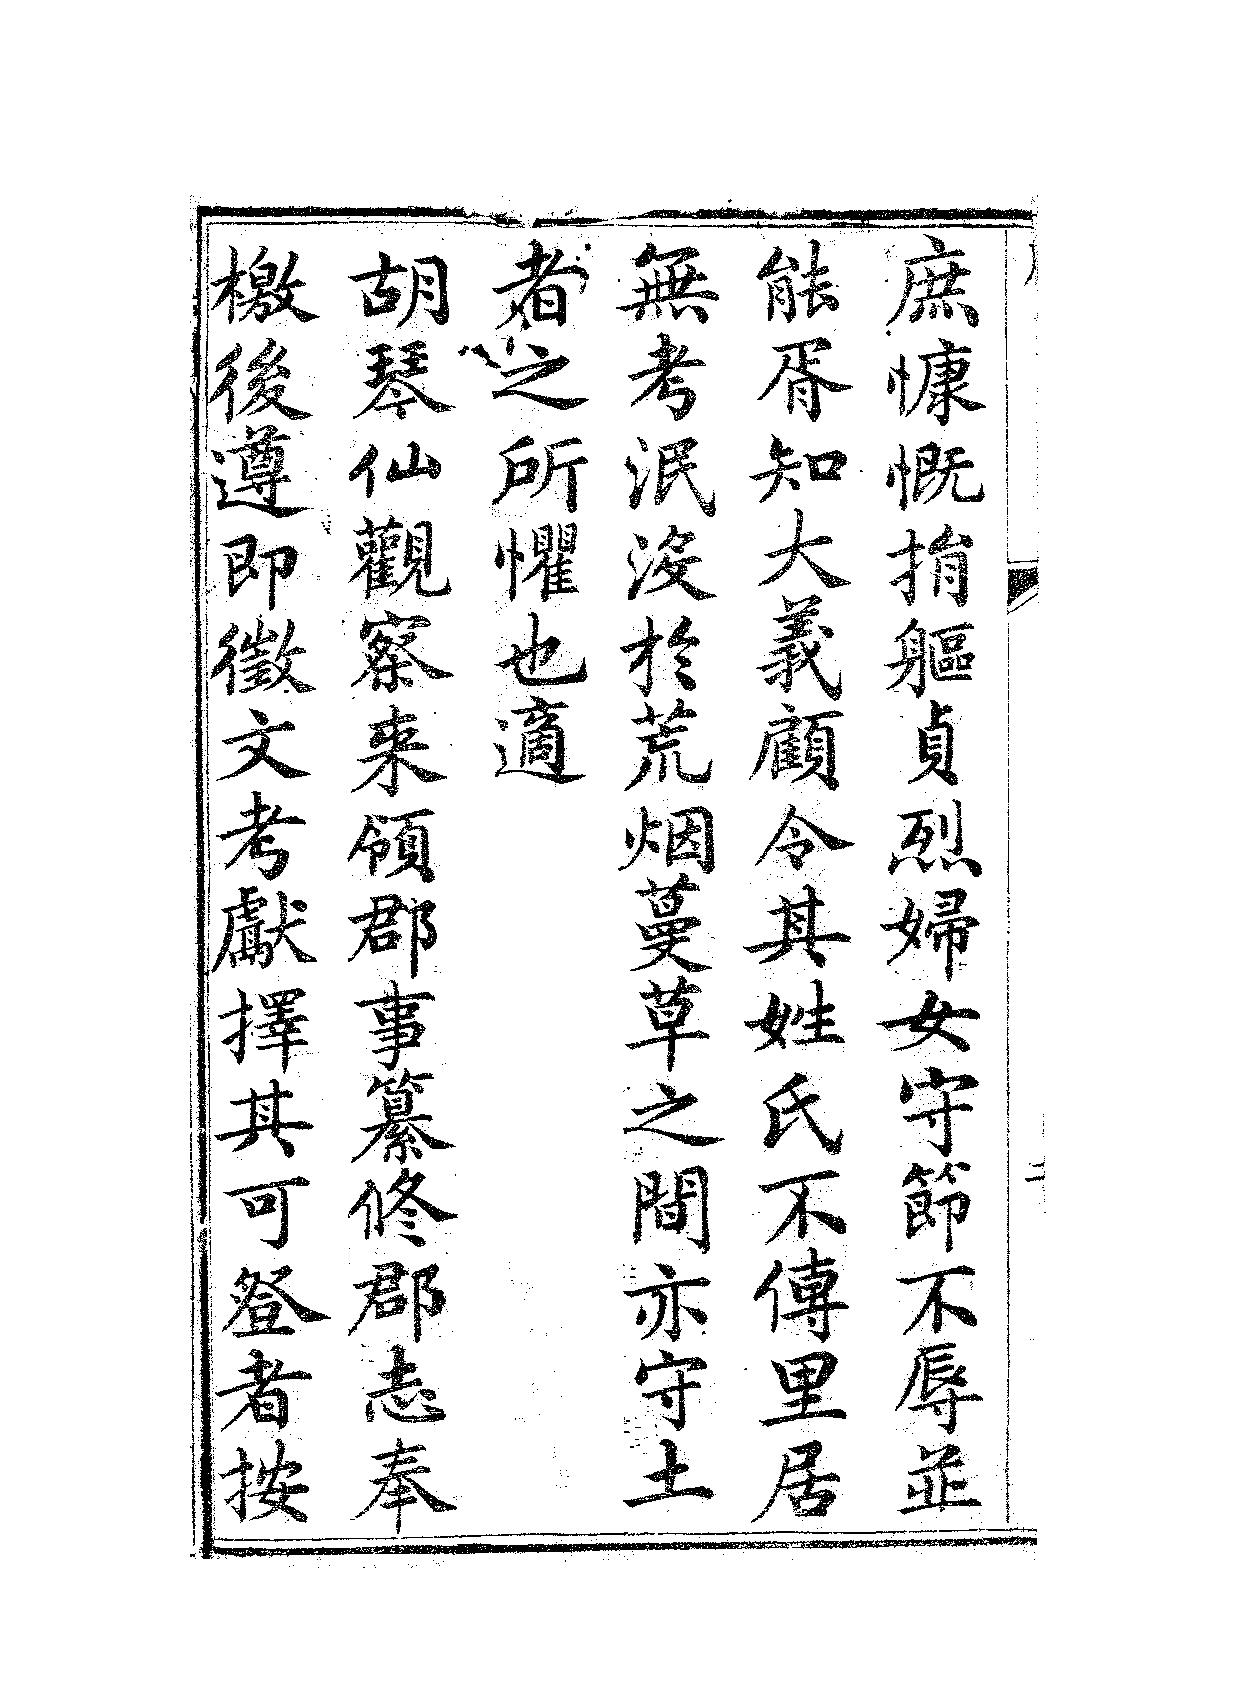 庶慷慨捐軀貞烈婦女守節不辱並
能胥知大義顧令其姓氏不傳里居
無考泯没於荒烟蔓草之間亦守土
者之所懼也適
胡琴仙觀察来領郡事纂修郡志奉
檄後遵即徵文考獻擇其可登者按